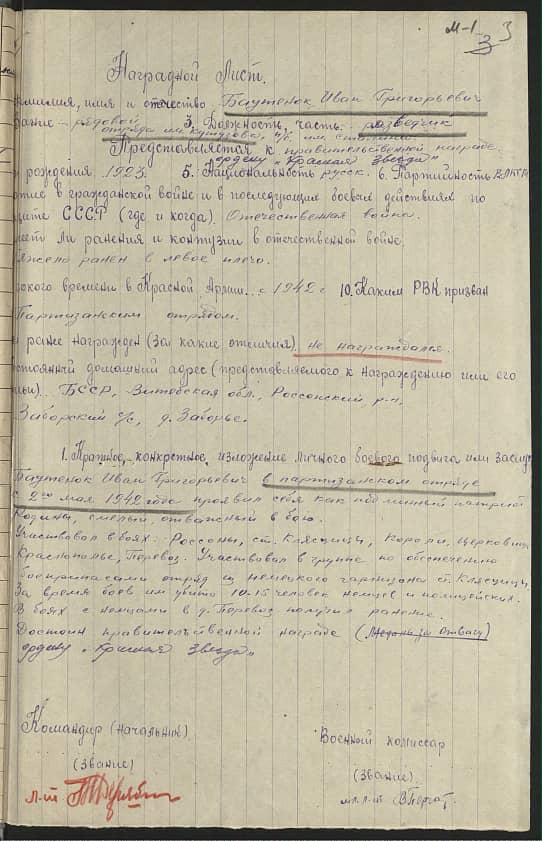 М-1 3 3
Наградной Лист.
амилия, имя и отчество Баутенок Иван Григорьевич
вание - рядовой 3. Должность, часть разведчик
отряда им. Кутузова, п/б. им. Сталина
Представляется к правительственной награде
ордену "Красная Звезда"
рождения. 1923. 5. Национальность русск. 6. Партийность ВЛКСМ
стие в гражданской войне и в последующих боевых действиях по
щите СССР (где и когда). Отечественная война.
меет ли ранения и контузии в отечественной войне.
яжело ранен в левое плечо.
акого времени в Красной Армии.. с 1942 г 10. Каким РВК призван
Партизанским отрядом.
м ранее награжден (за какие отличия) не награждался.
остоянный домашний адрес (представляемого к награждению или его
мьи). БССР, Витебская обл., Россонский р-н,
Заборский с/с, д. Заборье.
1. Краткое, конкретное изложение личного боевого подвига или заслуг
Баутенок Иван Григорьевич в партизанском отряде
с 2го мая 1942 года проявил себя как подлинный патриот
Родины, смелый, отважный в бою.
Участвовал в боях: Россоны, ст. Клясцицы, Короли, Церковища
Краснополье, Перевоз. Участвовал в группе по обеспечению
боеприпасами отряд из немецкого гарнизона ст. Клясцицы
За время боев им убито 10-15 человек немцев и полицейских.
В боях с немцами в д. Перевоз получил ранение.
Достоин правительственной награде (Медали за Отвагу)
ордену "Красная Звезда"
Командир (начальник) Военный комиссар
(звание) (звание)
л-т мл. л-т